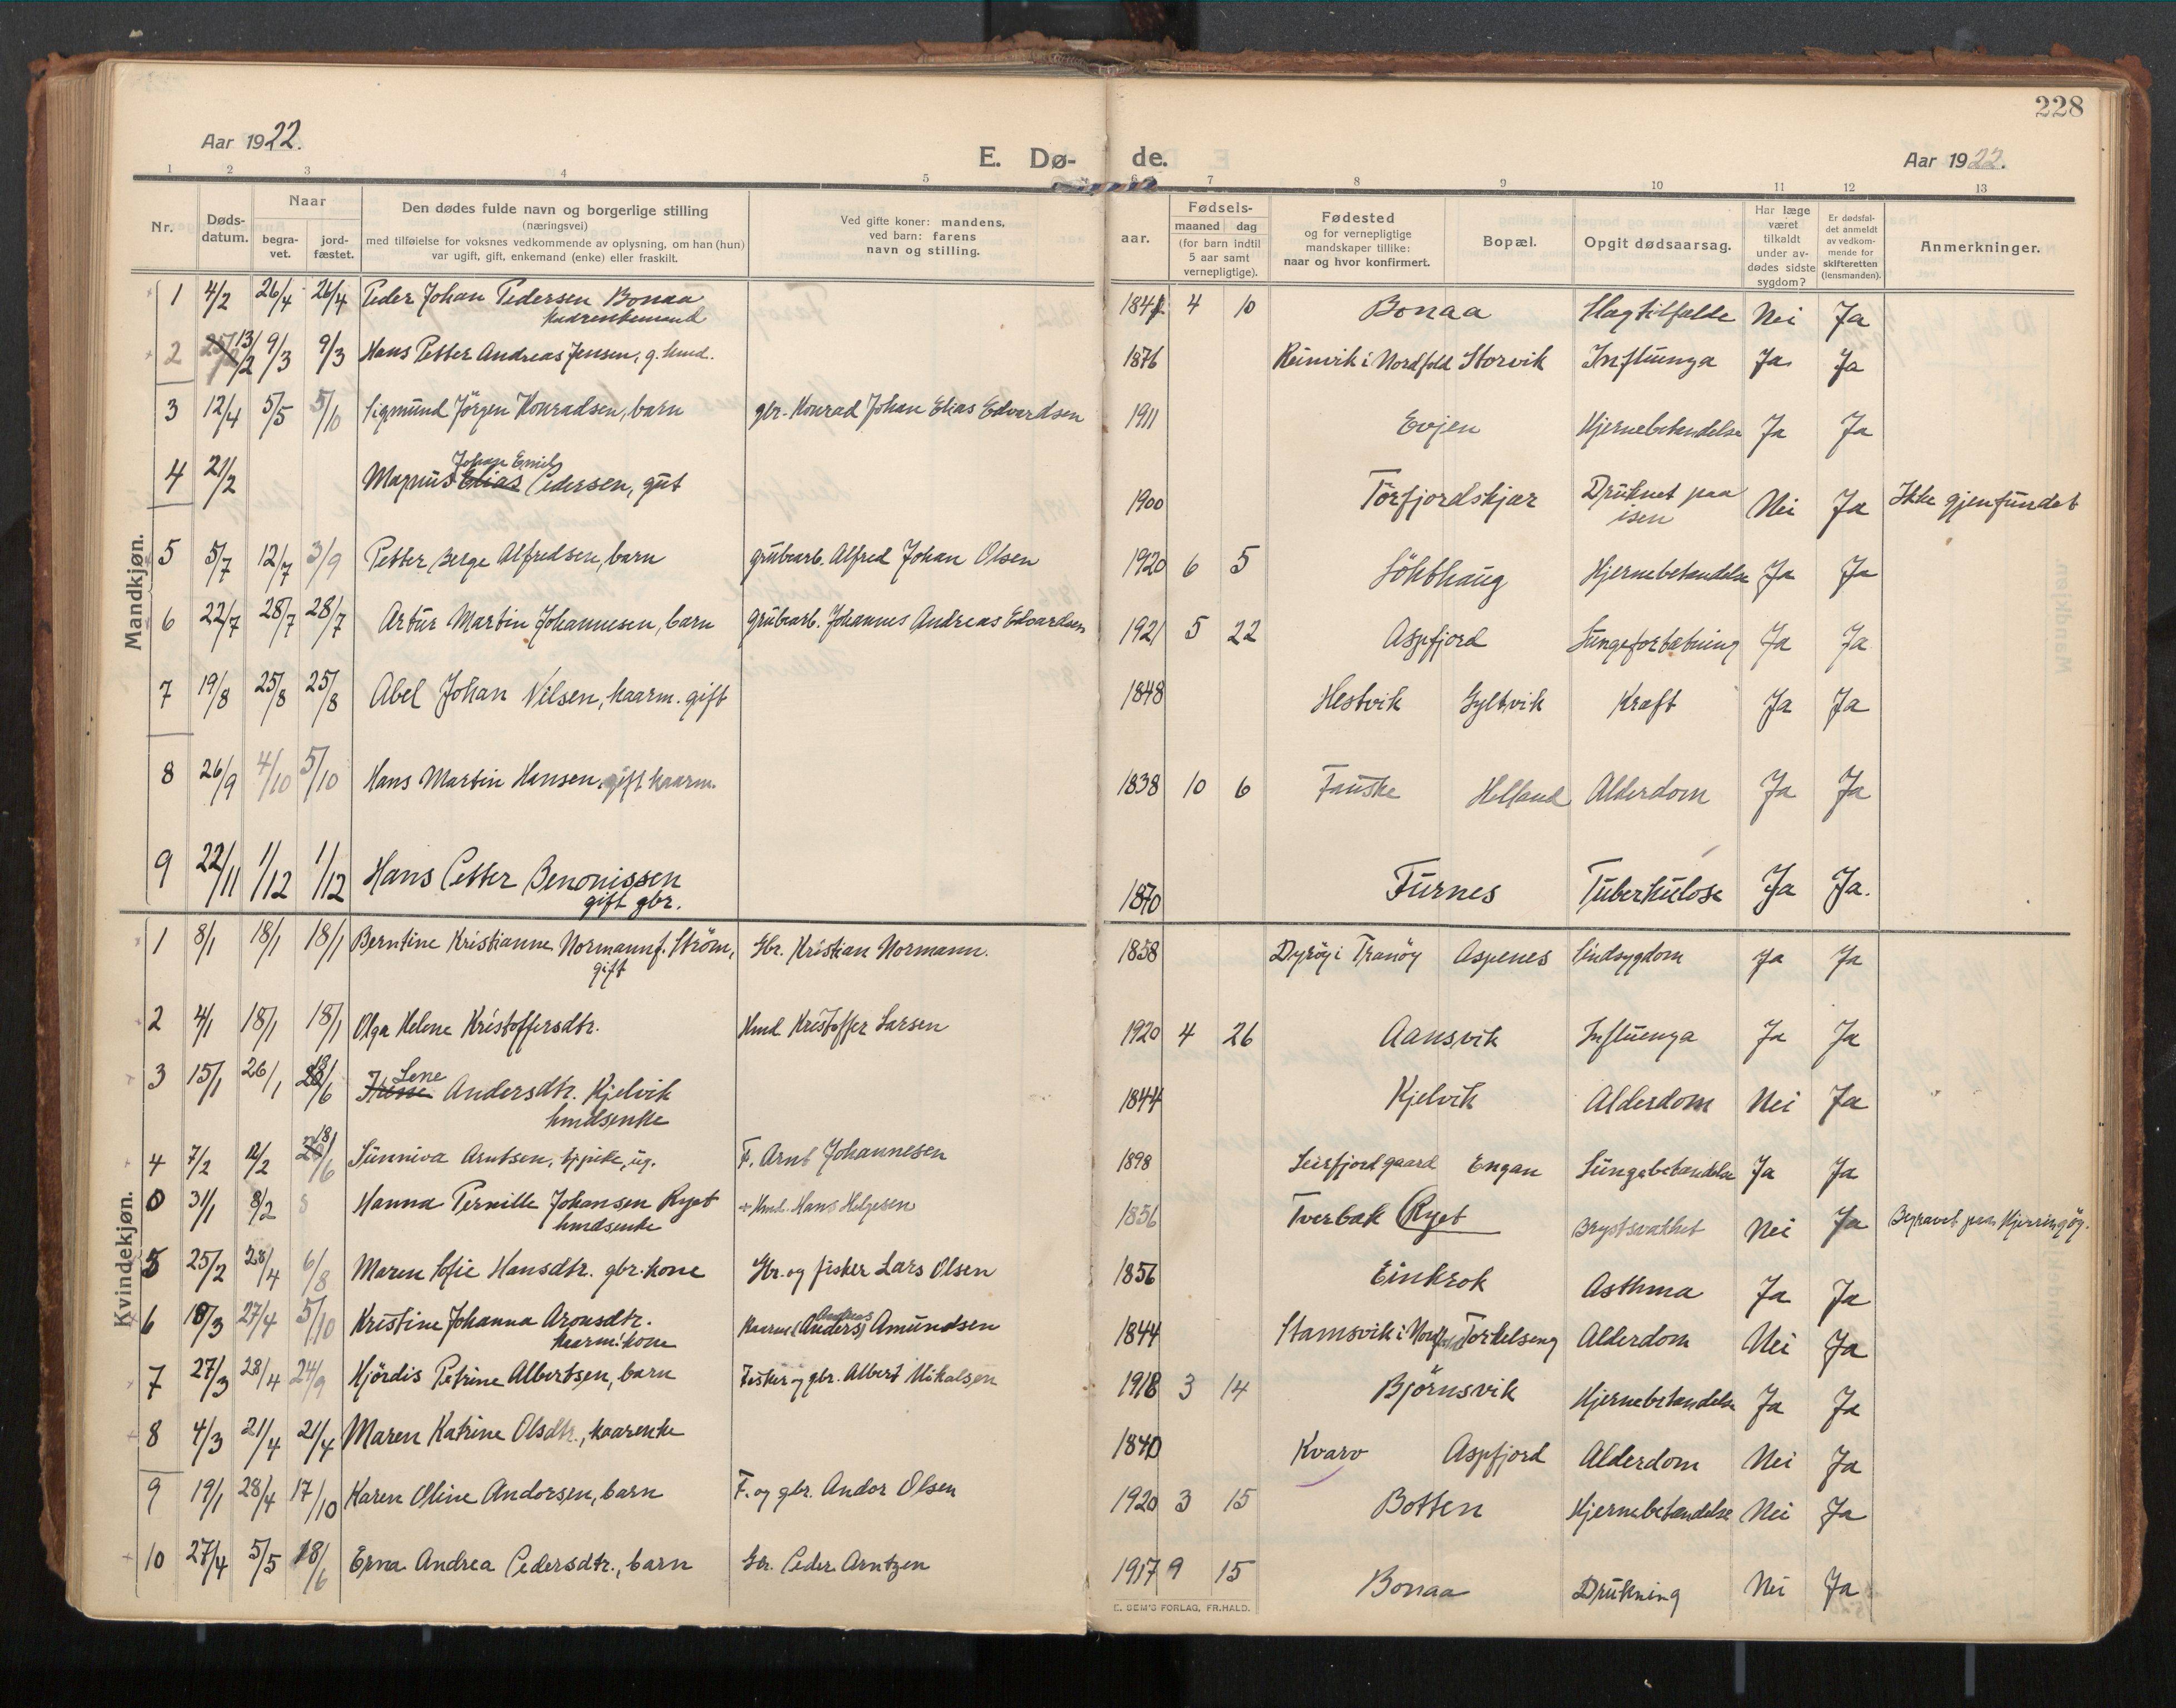 228
Aar 1922.
E. Dø- de.
Aar 1922.
1 2 3 4 5 6 7 8 9 10 11 12 13
Nr.
Døds-
datum.
Naar
begra-
vet.
jord-
fæstet.
Den dødes fulde navn og borgerlige stilling
(næringsvei)
med tilføielse for voksnes vedkommende av oplysning, om han (hun)
var ugift, gift, enkemand (enke) eller fraskilt.
Ved gifte koner: mandens,
ved barn: farens
navn og stilling.
aar.
Fødsels-
maaned dag
(for barn indtil
5 aar samt
vernepligtige).
Fødested
og for vernepligtige
mandskaper tillike:
naar og hvor konfirmert.
Bopæl.
Opgit dødsaarsag.
Har læge
været
tilkaldt
under av-
dødes sidste
sygdom?
Er dødsfal-
det anmeldt
av vedkom-
mende for
skifteretten
(lensmanden).
Anmerkninger.
Mandkjøn.
1 4/2 26/4 26/4 Peder Johan Pedersen Bonaa 1841 4 10 Bonaa Slagtilfælde Nei Ja
2 13/2 9/3 9/3 Hans Petter Andreas Jensen, g. hmd. 1876 Reinvik i Nordfold Storvik Influenza Ja Ja
3 12/4 5/5 5/10 Sigmund Jörgen Konradsen, barn gbr. Konrad Johan Elias Edvardsen 1911 Evjen Hjernebetændelse Ja Ja
Johan Emil
4 21/2 Magnus Elias Pedersen, gut 1900 Törfjordskjær Druknet paa isen Nei Ja Ikke gjenfundet
5 5/7 12/7 3/9 Petter Berge Alfredsen, barn grubearb. Alfred Johan Olsen 1920 6 5 Lökthaug Hjernebetændelse Ja Ja
6 22/7 28/7 28/7 Artur Martin Johannesen, barn grubearb. Johannes Andreas Edvardsen 1921 5 22 Aspfjord Lungefortætning Ja Ja
7 19/8 25/8 25/8 Abel Johan Nilsen, kaarm. gift 1848 Hestvik Gyltvik Kræft Ja Ja
8 26/9 4/10 5/10 Hans Martin Hansen, gift kaarm. 1838 10 6 Fauske Helland Alderdom Ja Ja
9 22/11 1/12 1/12 Hans Petter Benonissen 1870 Furnes Tuberkulose Ja Ja.
gift gbr.
Kvindekjøn.
1 8/1 18/1 18/1 Berntine Kristianne Normann f. Ström, Gbr. Kristian Normann. 1858 Dyröy i Tranöy Aspenes Sindsygdom Ja Ja
gift
2 4/1 18/1 18/1 Olga Helene Kristoffersdtr. Hmd Kristoffer Larsen 1920 4 26 Aansvik Influenza Ja Ja
Lene
3 15/1 26/1 18/6 Andersdtr. Kjelvik 1844 Kjelvik Alderdom Nei Ja
hmdsenke
4 7/2 11/2 18/6 Sunniva Arntsen, tjpike, ug. F. Arnt Johannesen 1898 Leirfjordgaard Engan Lungebetændelse Ja Ja
0 31/1 8/2 Hanna Pernille Johansen Ryet Hmd. Hans Helgesen 1856 Tverbak Ryet Brystsvakhet Nei Ja Begravet paa Kjerringöy.
hmdsenke
5 25/2 28/4 6/8 Maren Sofie Hansdtr. gbr. kone Gbr. og fisker Lars Olsen 1856 Einkrok Asthma Ja Ja
Andreas
6 18/3 27/4 5/10 Kristine Johanna Aronsdtr. Kaarm. (Anders) Amundsen 1844 Stamsvik i Nordfold Torkelseng Alderdom Nei Ja
kaarm. kone
7 27/3 28/4 24/9 Hjördis Petrine Albertsen, barn Fisker og gbr. Albert Nikolsen 1918 3 14 Björnsvik Hjernebetændelse Ja Ja
8 4/3 21/4 21/4 Maren Katrine Olsdtr., kaarenke 1840 Kvarv Aspfjord Alderdom Nei Ja
9 19/1 28/4 17/10 Karen Oline Andorsen, barn F. og gbr. Andor Olsen 1920 3 15 Botten Hjernebetændelse Nei Ja
10 27/4 5/5 18/6 Erna Andrea Pedersdtr., barn Gbr. Peder Arntzen 1917 9 15 Bonaa Drukning Nei Ja
E. SEM'S FORLAG, FR.HALD.